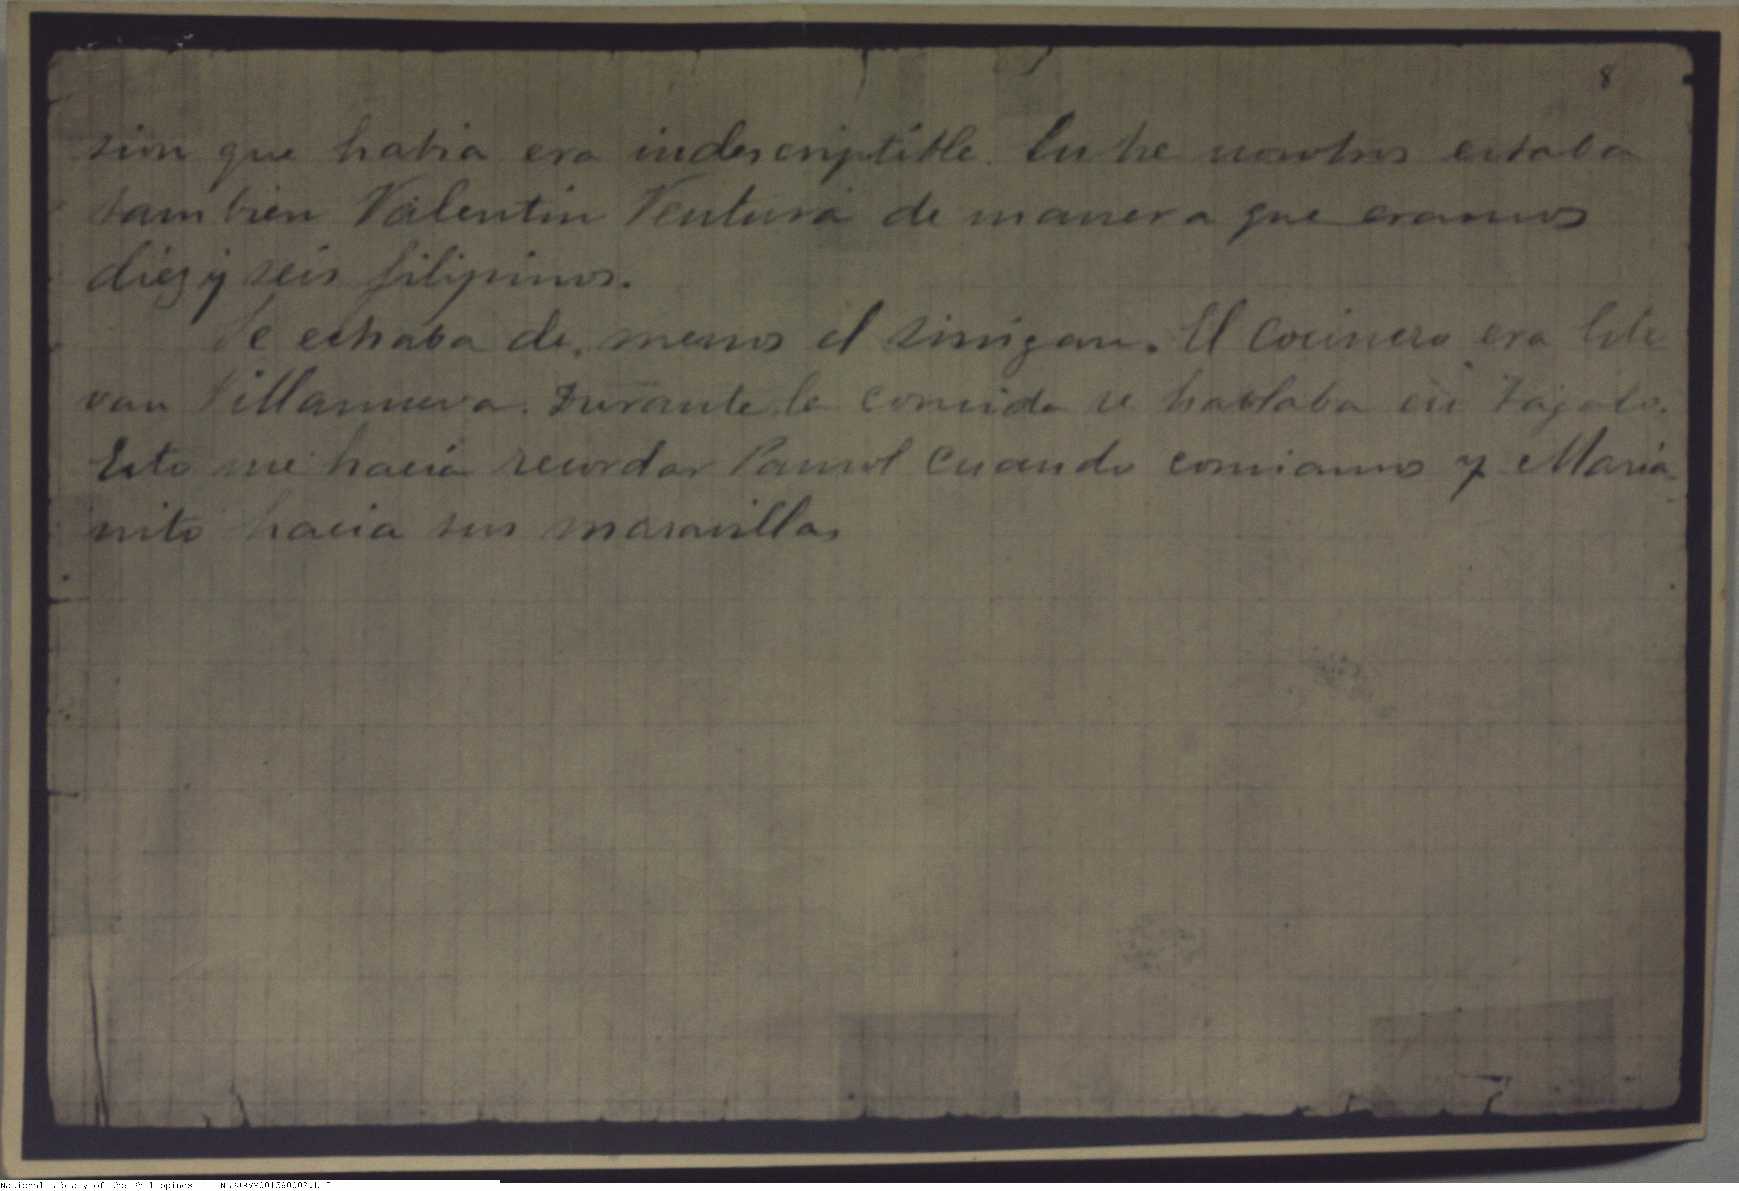 8
sion que habia era indescriptible. Entre nosotros estaba
tambien Valentin Ventura de manera que eramos
diez y seis filipinos.
Se echaba de menos el sinigan. El cocinero era Este
van Villanueva. Durante la comida se hablaba en Tagalo.
Esto me hacia recordar cuando comiamos y Maria-
nito hacia sus maravillas
National Library of the Philippines